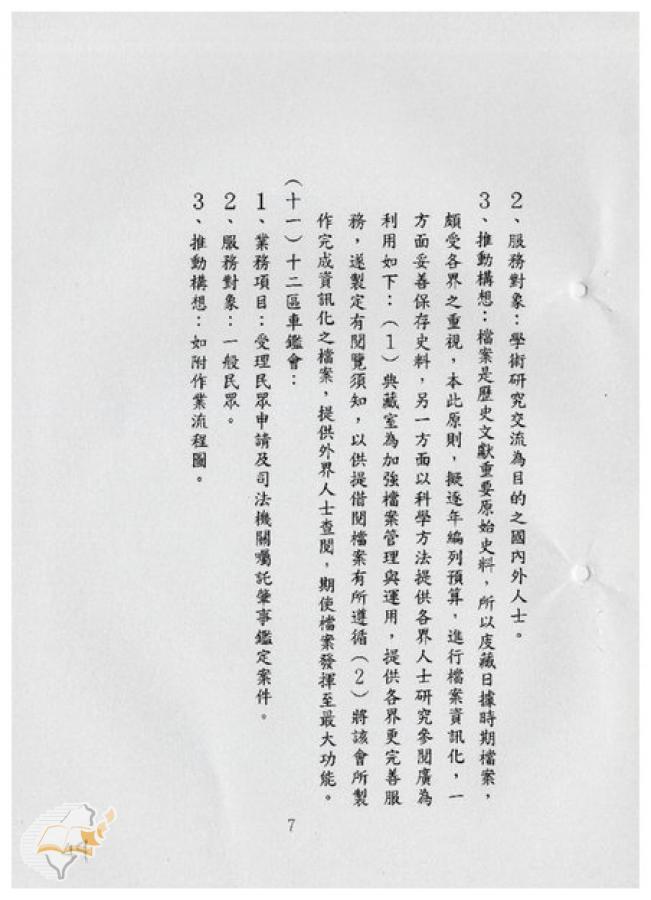 2、服務對象：學術研究交流為目的之國內外人士。
3、推動構想：檔案是歷史文獻重要原始史料，所以庋藏日據時期檔案，
頗受各界之重視，本此原則，擬逐年編列預算，進行檔案資訊化，一
方面妥善保存史料，另一方面以科學方法提供各界人士研究參閱廣為
利用如下：（1）典藏室為加強檔案管理與運用，提供各界更完善服
務，遂製定有閱覽須知，以供提借閱檔案有所遵循（2）將該會所製
作完成資訊化之檔案，提供外界人士查閱，期使檔案發揮至最大功能。
（十一）十二區車鑑會：
1、業務項目：受理民眾申請及司法機關囑託肇事鑑定案件。
2、服務對象：一般民眾。
3、推動構想：如附作業流程圖。
7